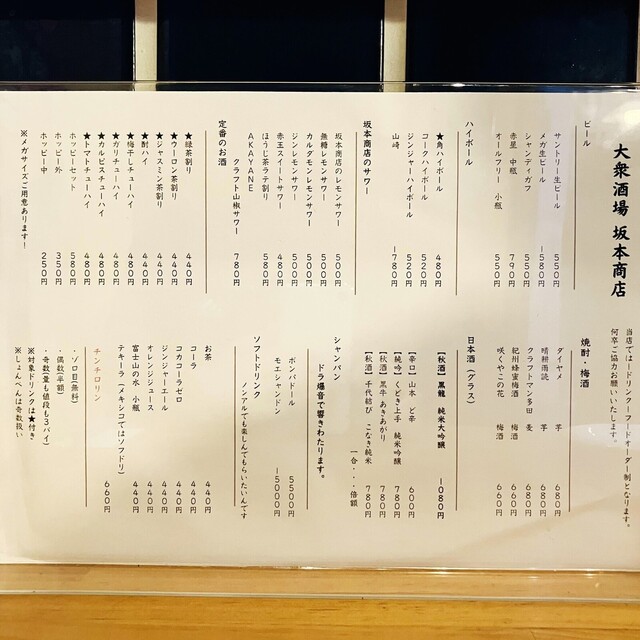 大衆酒場 坂本商店
当店では一ドリンク一フードオーダー制となります。
何卒ご協力お願いいたします。
ビール
サントリー生ビール 550円
メガ生ビール 1580円
シャンディガフ 550円
赤星 中瓶 790円
オールフリー 小瓶 550円
ハイボール
★角ハイボール 480円
コークハイボール 520円
ジンジャーハイボール 520円
山崎 1780円
坂本商店のサワー
坂本商店のレモンサワー 500円
無糖レモンサワー 500円
カルダモンレモンサワー 500円
ジンレモンサワー 500円
赤玉スイートサワー 480円
ほうじ茶ラテ割り 580円
AKAYANE
クラフト山椒サワー 780円
定番のお酒
★緑茶割り 440円
★ウーロン茶割り 440円
★ジャスミン茶割り 440円
★酎ハイ 440円
★梅干しチューハイ 480円
★ガリチューハイ 480円
★カルピスチューハイ 480円
★トマトチューハイ 480円
ホッピーセット 580円
ホッピー外 350円
ホッピー中 250円
※メガサイズご用意あります!
焼酎・梅酒
ダイヤメ 芋 680円
晴耕雨読 芋 680円
クラフトマン多田 麦 680円
紀州蜂蜜梅酒 梅酒 660円
咲くやこの花 梅酒 660円
日本酒(グラス)
【秋酒】黒龍 純米大吟醸 1080円
【辛口】山本 ど辛 600円
【純吟】くどき上手 純米吟醸 780円
【秋酒】黒牛 あきあがり 780円
【秋酒】千代結び こなき純米 780円
一合・・・倍額
シャンパン
ドラ爆音で響きわたります。
ポンパドール 5500円
モエシャンドン 15000円
ソフトドリンク
ノンアルでも楽しんでもらいたいんです
お茶 440円
コーラ 440円
コカコーラゼロ 440円
ジンジャーエール 440円
オレンジジュース 440円
富士山の水 小瓶 440円
テキーラ(メキシコではソフドリ) 660円
チンチロリン
・ゾロ目(無料)
・偶数(半額)
・奇数(量も値段も3バイ)
※対象ドリンクは★付き
※しょんべんは奇数扱い